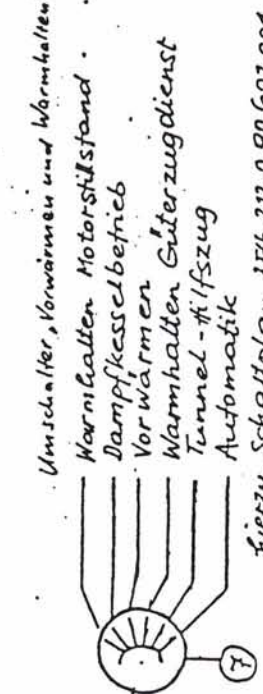 Umschalter, Vorwärmen und Warmhalten
Warmhalten Motorstillstand
Dampfkesselbetrieb
Vorwärmen
Warmhalten Güterzugdienst
Tunnel-Hilfszug
Automatik
7
hierzu Schaltplan